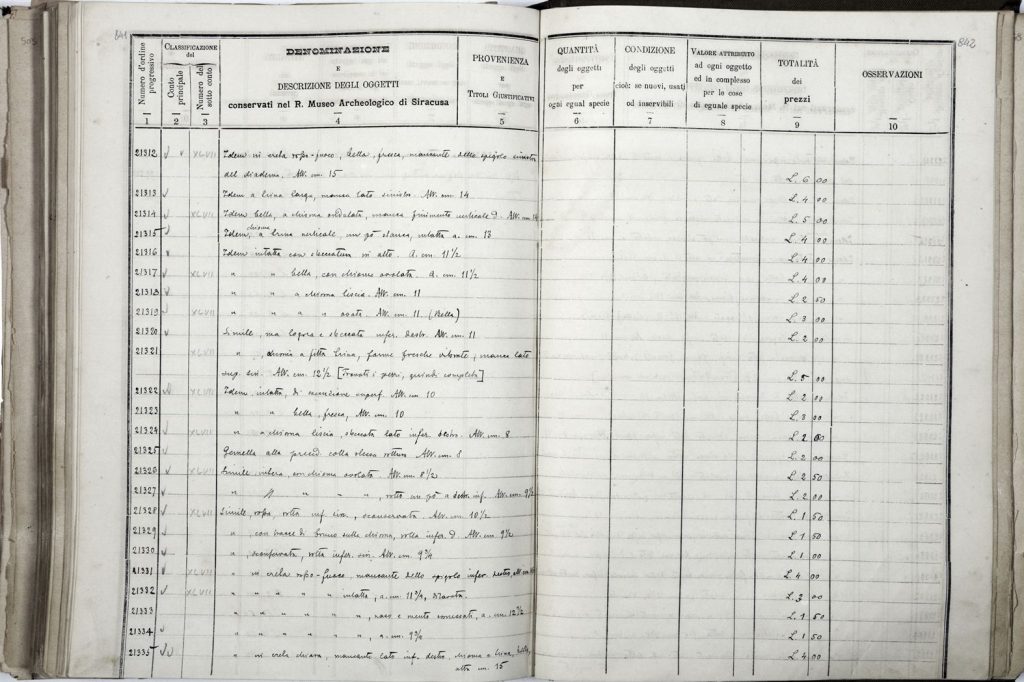 841
CLASSIFICAZIONE del
Numero d'ordine progressivo
Conto principale
Numero del sotto conto
DENOMINAZIONE
E
DESCRIZIONE DEGLI OGGETTI
conservati nel R. Museo Archeologico di Siracusa
PROVENIENZA
E
TITOLI GIUSTIFICATIVI
1 2 3 4 5
21312 XLVII Idem in creta rosso-fuoco, bella, fresca, mancante dello spigolo sinistro
del diadema. Alt. cm. 15
21313 Idem a crina larga, manca lato sinistro. Alt. cm. 14
21314 XLVII Idem bella, a chioma ondulata, manca finimento verticale d. Alt. cm. 14
21315 Idem, chioma a crina verticale, un pò stanca, intatta a. cm. 13
21316 Idem intatta con sbeccatura in alto. A. cm. 11½
21317 XLVII " " bella, con chioma ovolata. A. cm. 11½
21318 " " a chioma liscia. Alt. cm. 11
21319 XLVII " " " " ovata. Alt. cm. 11. (Bella)
21320 Simile, ma logora e sbeccata infer. destr. Alt. cm. 11
21321 XLVII " , chioma a fitta crina, forme fresche vibrate, manca lato
sup. sin. Alt. cm. 12½ [Trovati i pezzi, quindi completa]
21322 XLVII Idem, intatta, di esecuzione imperf. Alt. cm. 10
21323 " " bella, fresca, Alt. cm. 10
21324 XLVII " a chioma liscia, sbeccata lato infer. destr. Alt. cm. 8
21325 Gemella alla preced. colla stessa rottura Alt. cm. 8
21326 XLVII Simile intera, con chioma ovolata. Alt. cm. 8½
21327 " " " " " , rotta un pò a destr. inf. Alt. cm. 9½
21328 XLVII Simile, rossa, rotta inf. sconservata. Alt. cm. 10½
21329 " , con tracce di bruno sulla chioma, rotta infer. d. Alt. cm. 9½
21330 " , sconservata, rotta infer. sin. Alt. cm. 9¾
21331 XLVII " in creta rosso-fuoco, mancante dello spigolo infer. destro,
21332 XLVII " " " " " intatta, a. cm. 11¾,
21333 " " " " " , naso e mento a. cm. 12½
21334 " " " " " , a. cm. 9¾
21335 " in creta chiara, mancante lato inf. destro, chioma a crina,
alta cm. 15
842
QUANTITÀ
degli oggetti
per
ogni egual specie
6
CONDIZIONE
degli oggetti
cioè: se nuovi, usati
od inservibili
7
VALORE ATTRIBUITO
ad ogni oggetto
ed in complesso
per le cose
di eguale specie
8
TOTALITÀ
dei
prezzi
9
OSSERVAZIONI
10
L. 6 00
L. 4 00
L. 5 00
L. 4 00
L. 4 00
L. 4 00
L. 2 50
L. 3 00
L. 2 00
L. 5 00
L. 2 00
L. 3 00
L. 2 00
L. 2 00
L. 2 50
L. 2 00
L. 1 50
L. 1 50
L. 1 00
L. 4 00
L. 3 00
L. 1 50
L. 1 50
L. 4 00